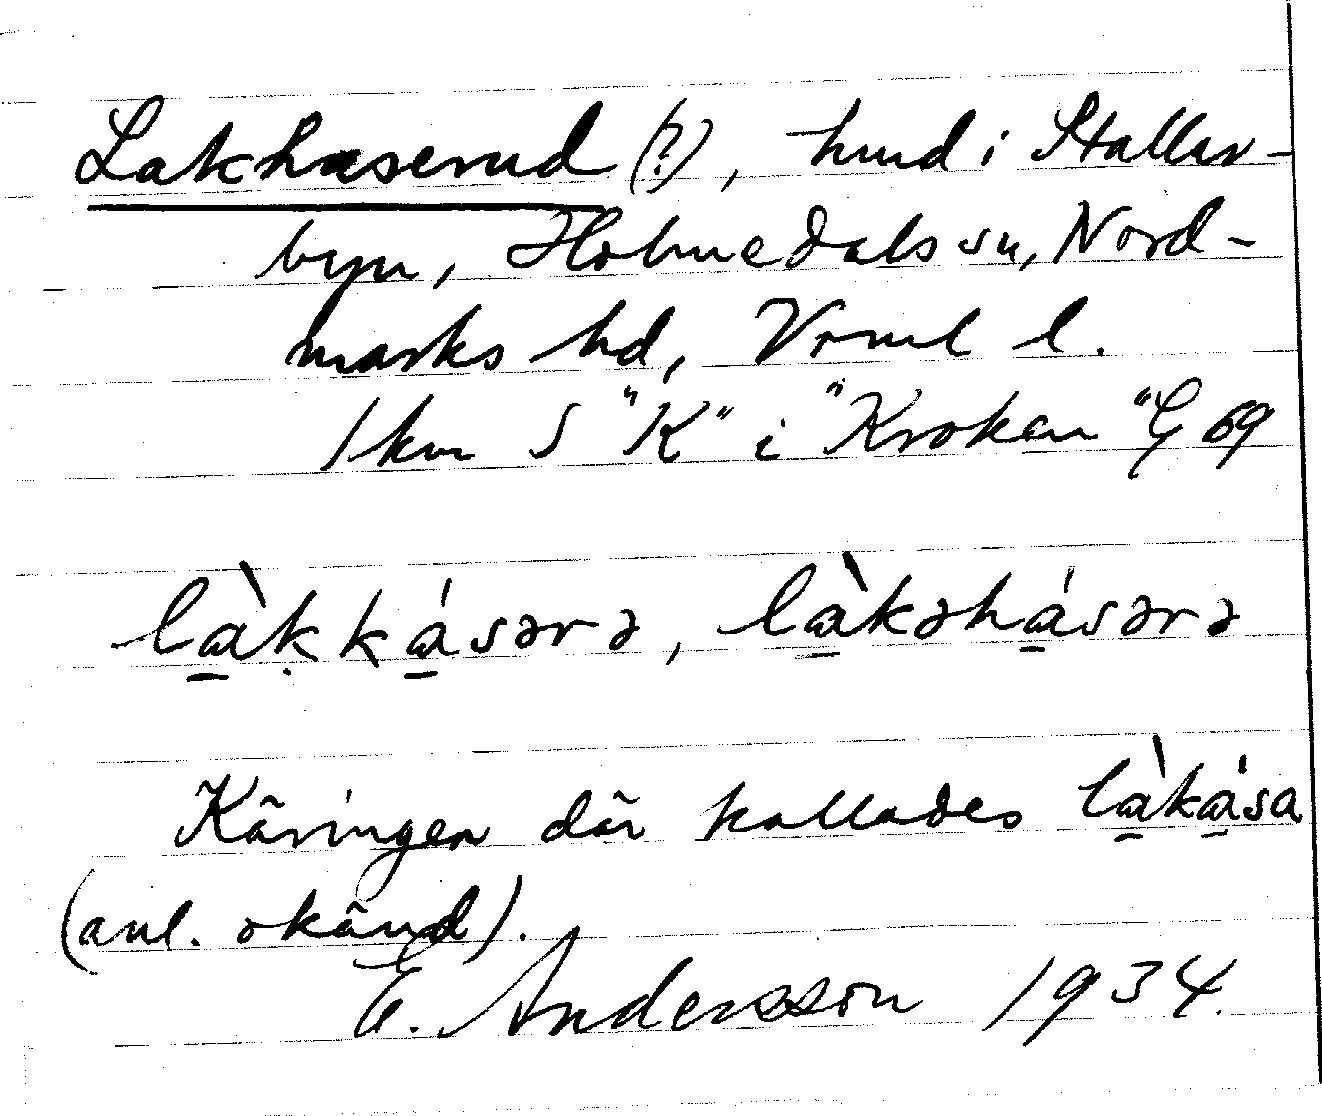 Lakhaserud (?), hmd i Stallar-
byn, Holmedals sn, Nord-
marks hd, Vrml l.
1 km S "K" i "Kroken" G 69
là̱ḳká̱sərə, là̱kəhá̱sərə
Käringen där kallades là̱ká̱sa
(anl. okänd).
E. Andersson 1934.